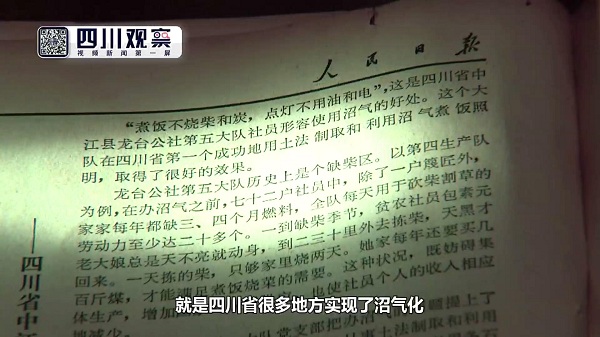 四川观察
视频新闻第一屏
人民日报
“煮饭不烧柴和炭，点灯不用油和电”，这是四川省中
江县龙台公社第五大队社员形容使用沼气的好处。这个大
队在四川省第一个成功地用土法制取和利用沼气煮饭照
明，取得了很好的效果。
龙台公社第五大队历史上是个缺柴区。以第四生产队
为例，在办沼气之前，七十二户社员中，除了一户篾匠外，
家家每年都缺三、四个月燃料，全队每天用于砍柴割草的
劳动力至少达二十多个。一到缺柴季节，贫农社员包素元
老大娘总是天不亮就动身，到二三十里外去拣柴，天黑才
回来。一天拣的柴，只够家里烧两天。她家每年还要买几
百斤煤，才能满足煮饭烧菜的需要。这种状况，既妨碍集
体生产，增加
也使社员个人的收入相应
地减少。
队党支部把办沼气
摄上了
土法制取和利用
——四川省中江
就是四川省很多地方实现了沼气化